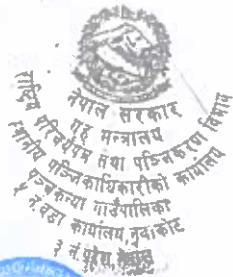 नेपाल सरकार
गृह मन्त्रालय
राष्ट्रिय परिचयपत्र तथा पञ्जिकरण विभाग
स्थानीय पञ्जिकाधिकारीको कार्यालय
पञ्चकन्या गाउँपालिका
५ नं. वडा कार्यालय,
३ नं. प्रदेश,